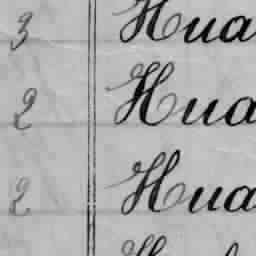 3 Hua
2 Hua
2 Hua